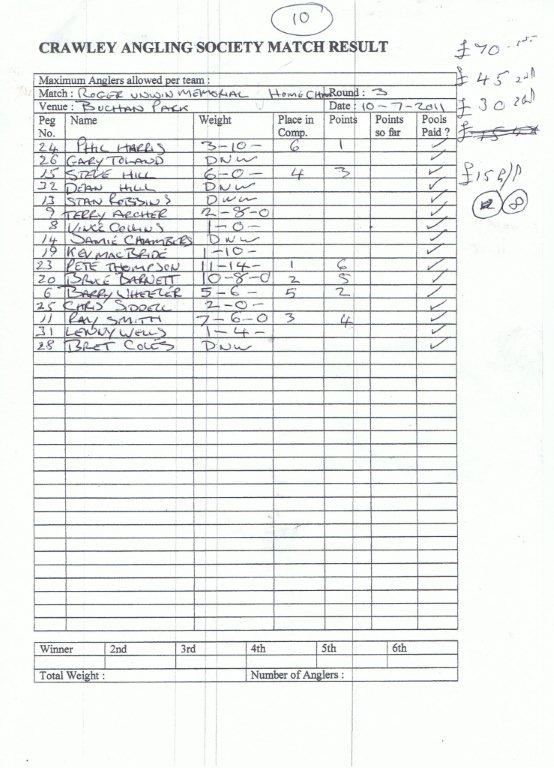 10
CRAWLEY ANGLING SOCIETY MATCH RESULT
£70 1st
£45 2nd
£30
£15 B/P
8
Maximum Anglers allowed per team :
Match : ROGER UNWIN MEMORIAL HOME Round : 3
Venue : BUCHAN PARK Date : 10-7-2011
Peg No. Name Weight Place in Comp. Points Points so far Pools Paid ?
24 PHIL HARRIS 3-10- 6 1 ✓
26 GARY TOLAND DNW ✓
15 STEVE HILL 6-0- 4 3 ✓
32 DEAN HILL DNW ✓
13 STAN ROBBINS DNW ✓
9 TERRY ARCHER 2-8-0 ✓
8 VINCE COLLINS 1-0- ✓
14 JAMIE CHAMBERS DNW ✓
19 KEV MACBRIDE 1-10- ✓
23 PETE THOMPSON 11-14- 1 6 ✓
20 BRUCE BARNETT 10-8-0 2 5 ✓
6 BARRY WHEELER 5-6- 5 2 ✓
25 CHRIS SIDDELL 2-0- ✓
11 RAY SMITH 7-6-0 3 4 ✓
31 LENNY WELLS 1-4- ✓
28 BRET COLES DNW ✓
Winner 2nd 3rd 4th 5th 6th
Total Weight : Number of Anglers :